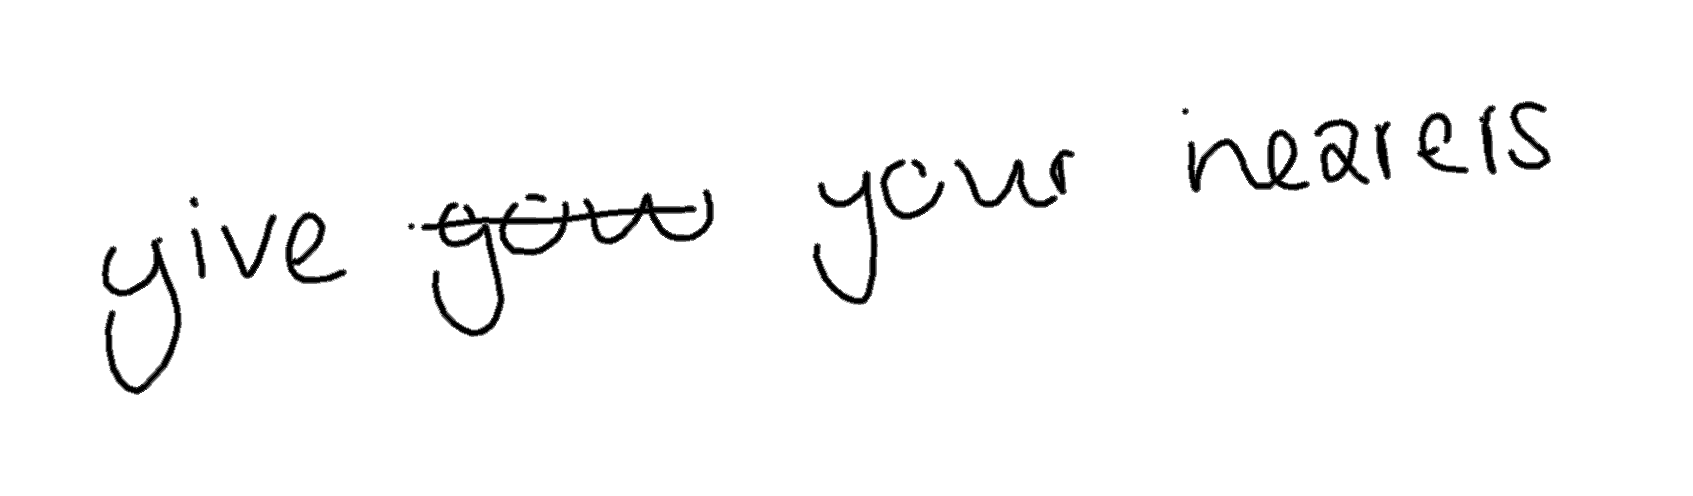 give you your nearers